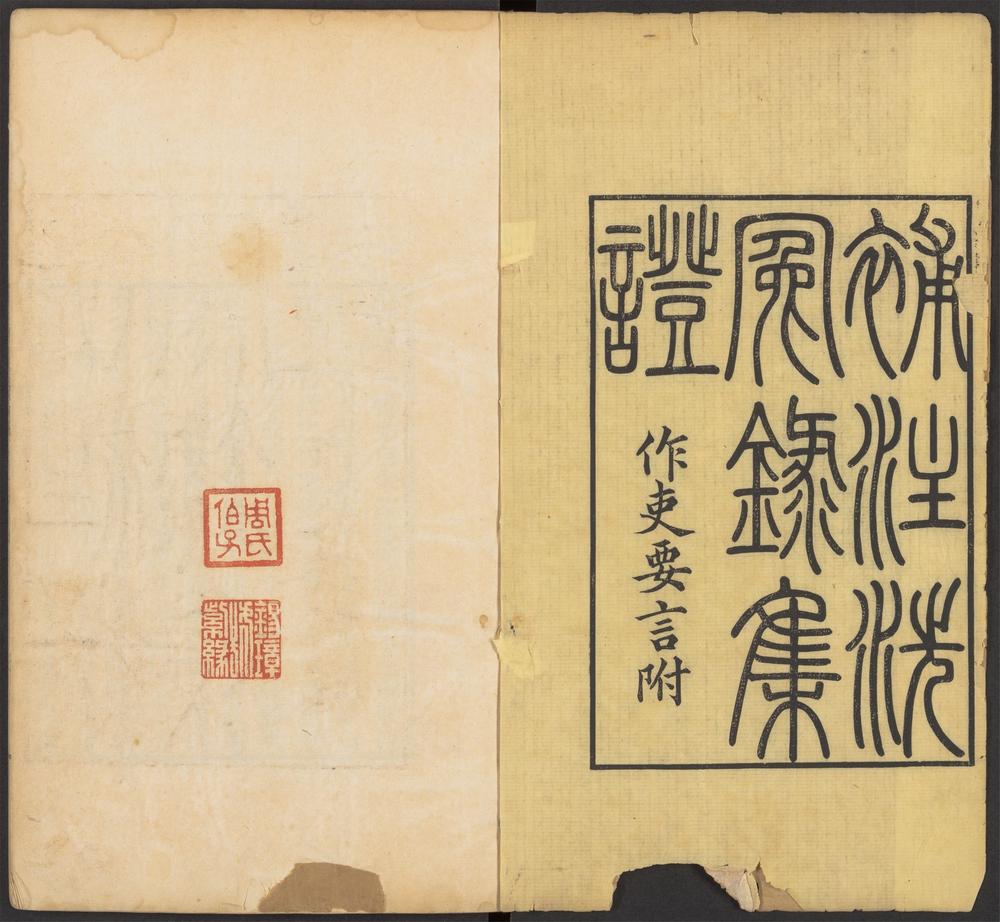 補注洗
冤錄集
證
作吏要言附
周氏
伯子